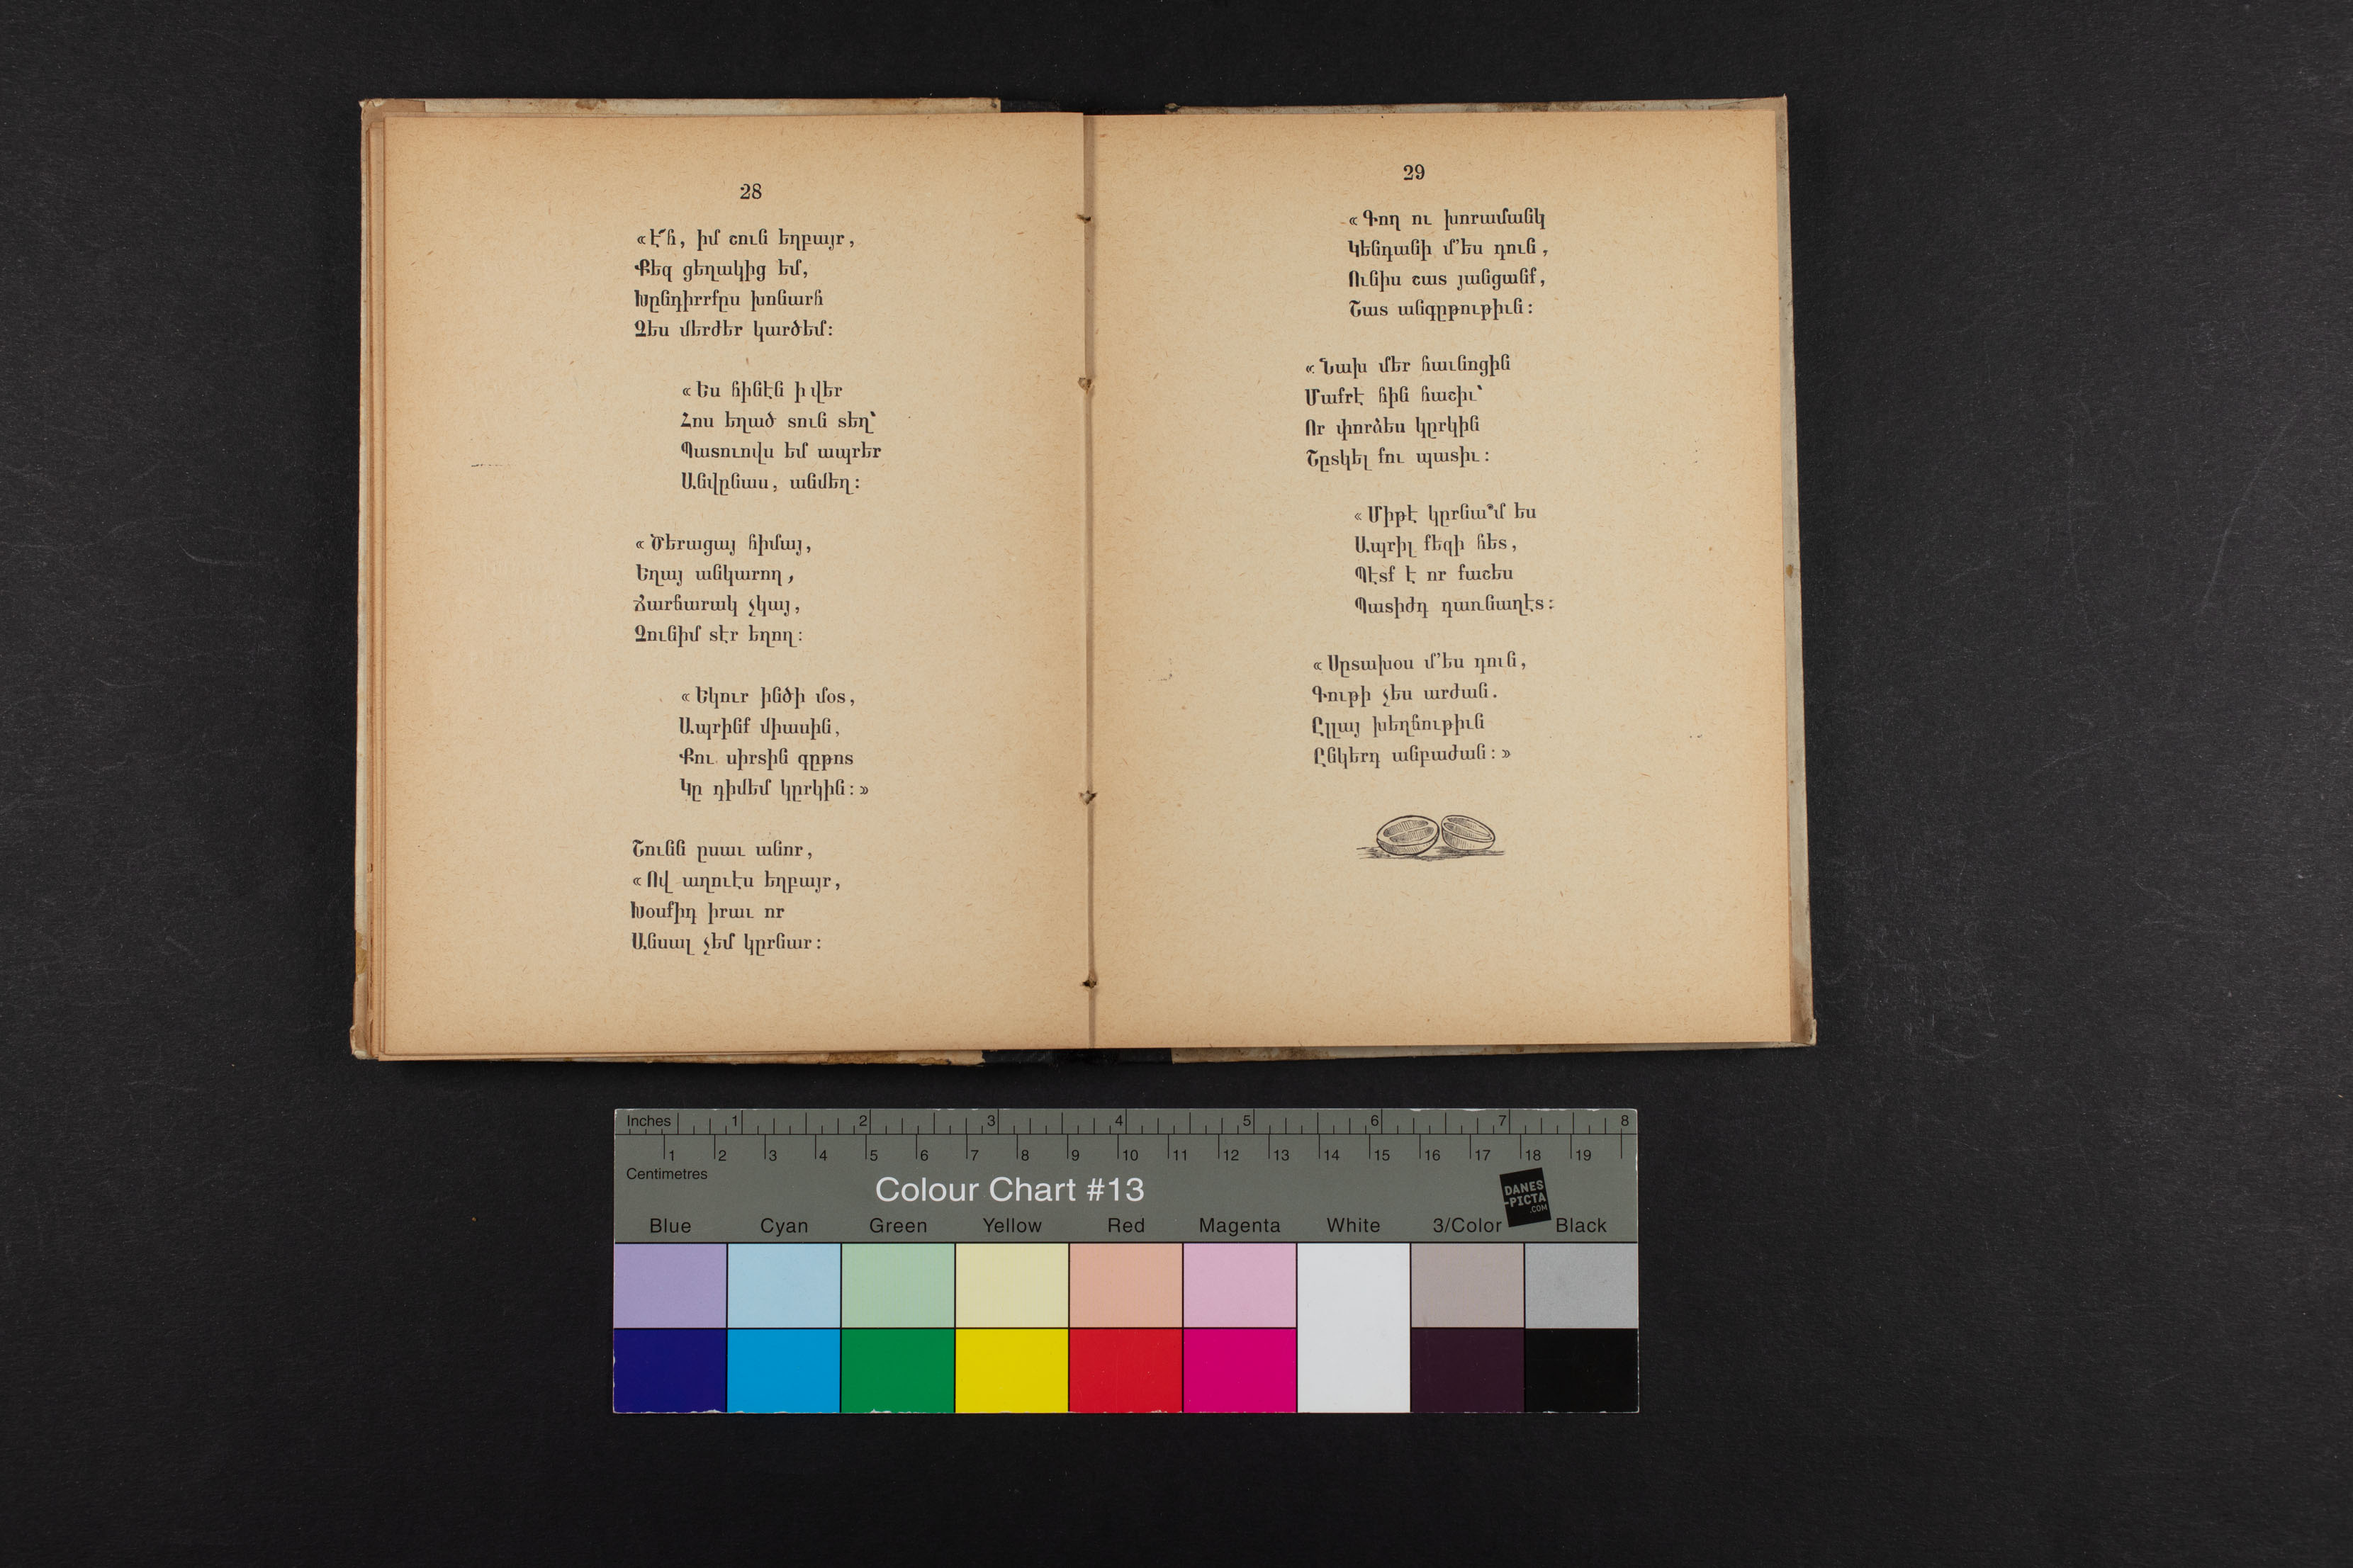 28
«Է՜հ, իմ շուն եղբայր,
Քեզ ցեղակից եմ,
Խընդիրրքըս խոնարհ
Չես մերժեր կարծեմ։
«Ես հինէն ի վեր
Հոս եղած տուն տեղ՝
Պատուովս եմ ապրեր
Անվընաս, անմեղ։
«Ծերացայ հիմայ,
Եղայ անկարող,
Ճարհարակ չկայ,
Չունիմ տէր եղող։
«Եկուր ինծի մօտ,
Ապրինք միասին,
Քու սիրտին գըթոտ
Կը դիմեմ կըրկին։»
Շունն ըսաւ անոր,
«Ով աղուէս եղբայր,
Խօսքիդ իրաւ որ
Անսալ չեմ կըրնար։
29
«Գող ու խորամանկ
Կենդանի մ՚ես դուն,
Ունիս շատ յանցանք,
Շատ անգըթութիւն։
«Նախ մեր հաւնոցին
Մաքրէ հին հաշիւ՝
Որ փորձես կըրկին
Շըտկել քու պատիւ։
«Միթէ կըրնա՞մ ես
Ապրիլ քեզի հետ,
Պէտք է որ քաշես
Պատիժդ դառնաղէտ։
«Սըտախօս մ՚ես դուն,
Գութի չես արժան.
Ըլլայ խեղճութիւն
Ընկերդ անբաժան։»
Inches 1 2 3 4 5 6 7 8
1 2 3 4 5 6 7 8 9 10 11 12 13 14 15 16 17 18 19
Centimetres
Colour Chart #13
DANES
-PICTA
.COM
Blue Cyan Green Yellow Red Magenta White 3/Color Black